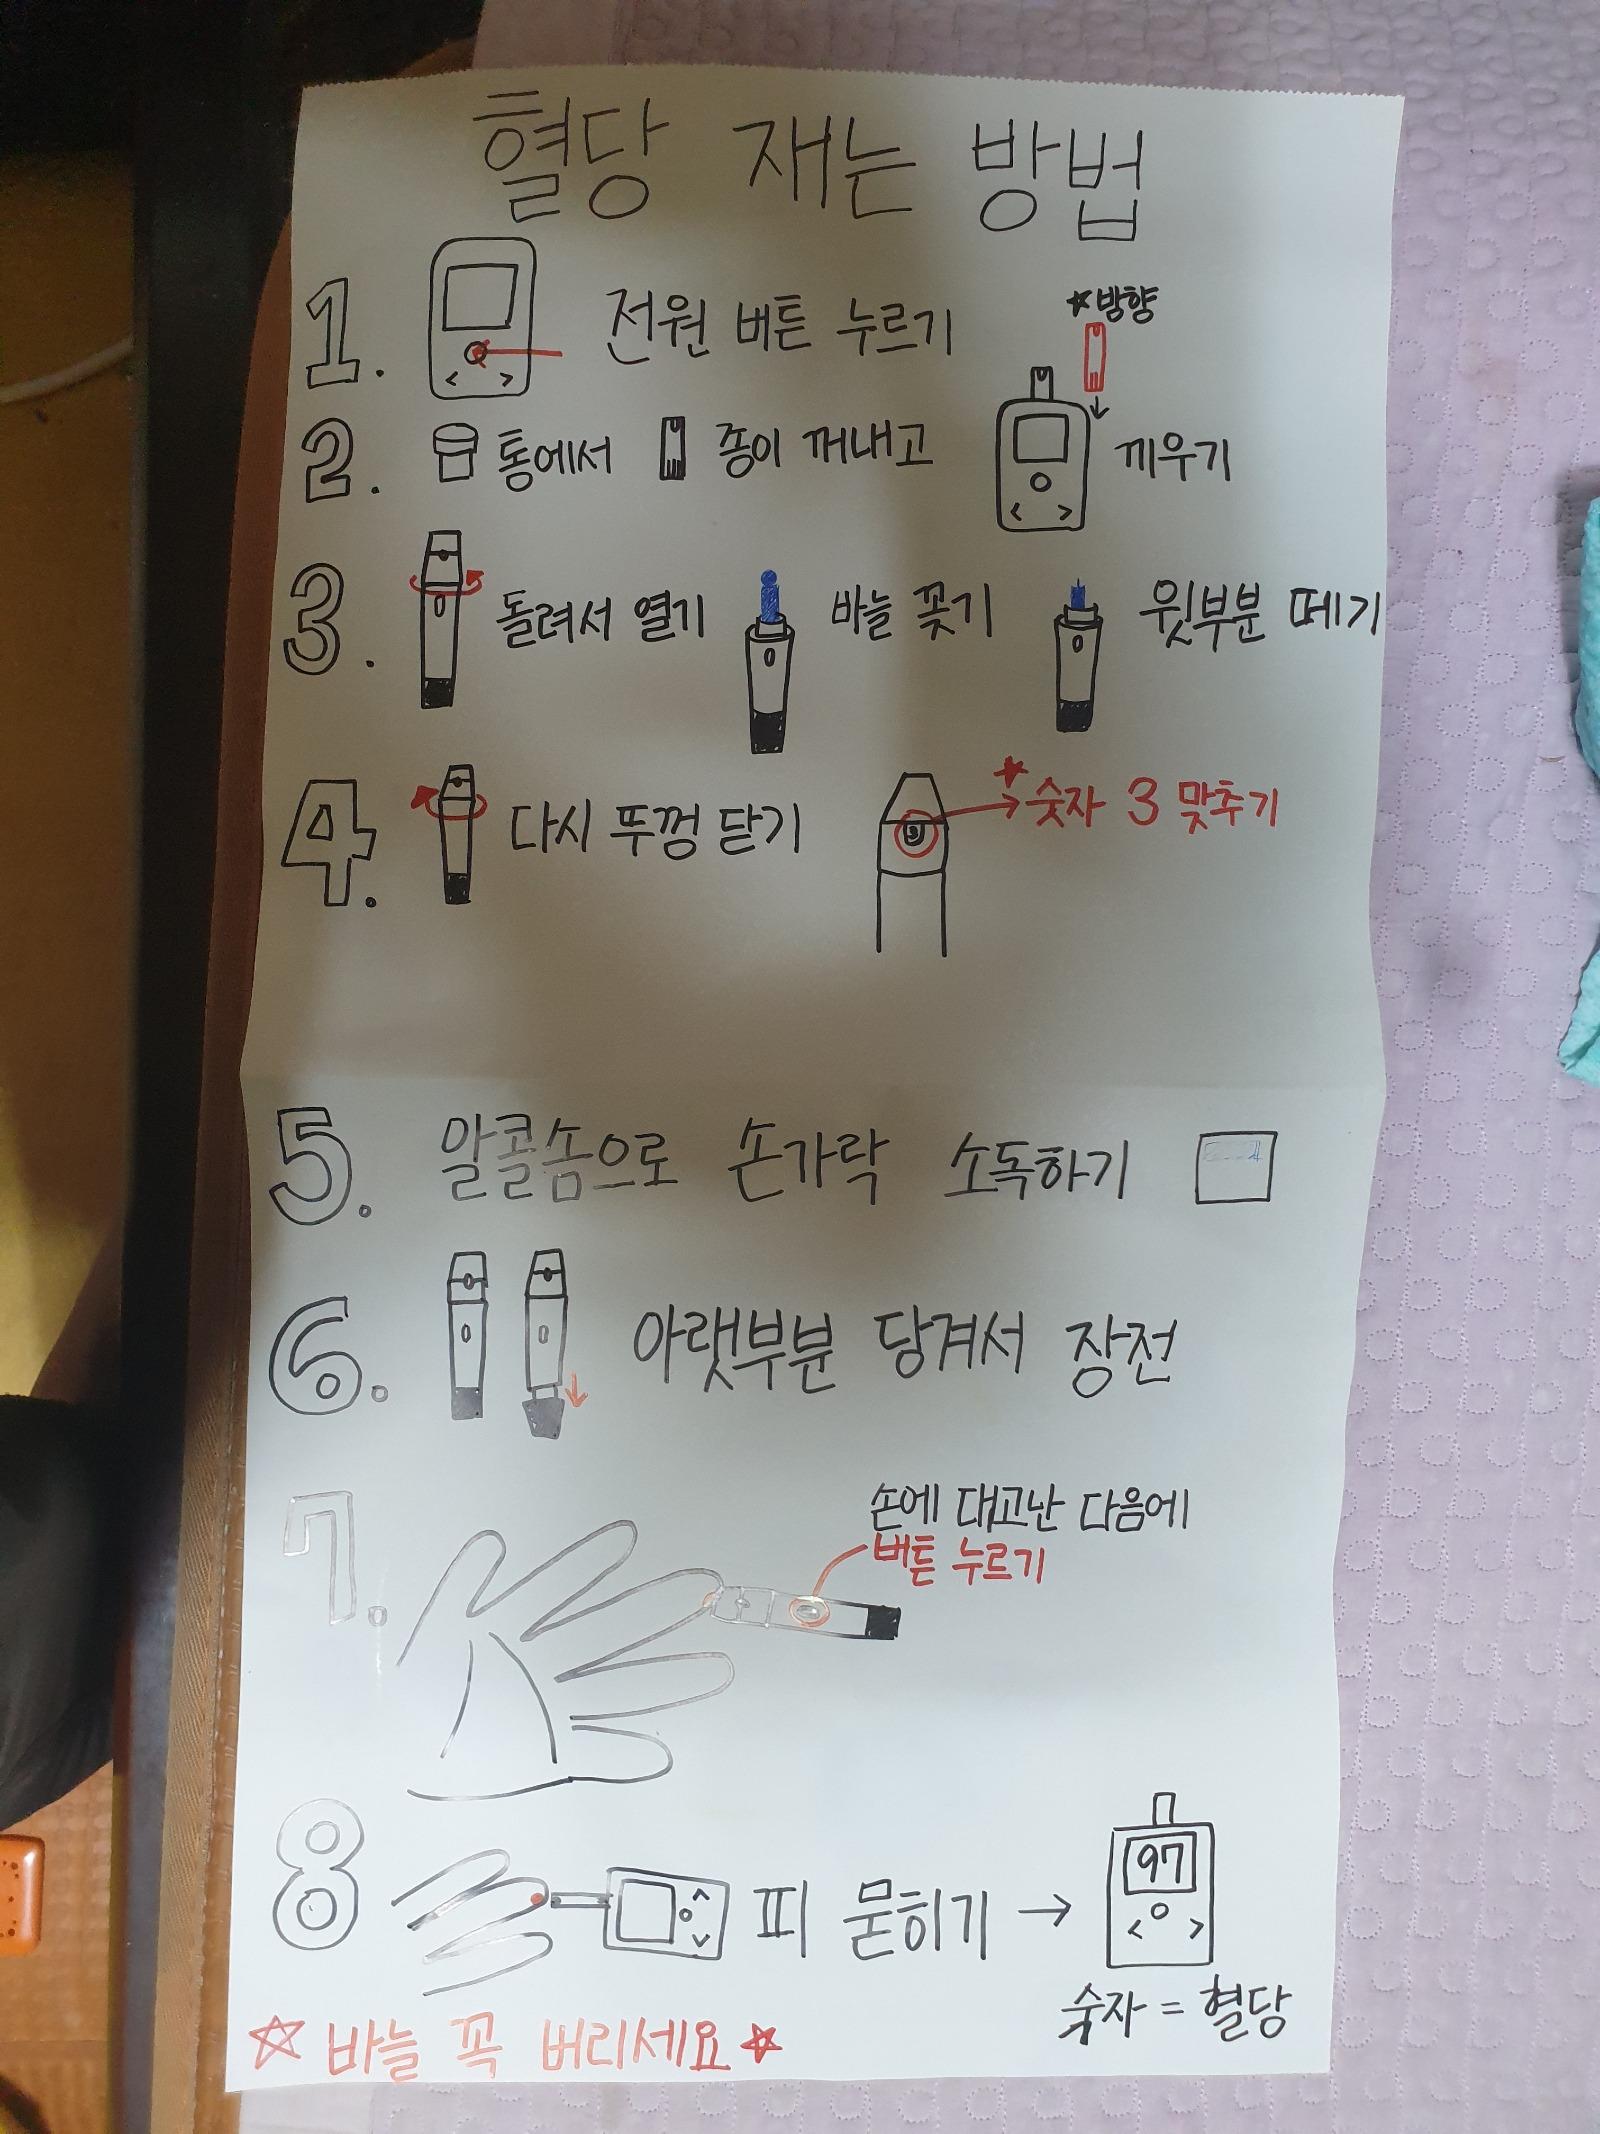 혈당 재는 방법
1. 전원 버튼 누르기
★방향
2. 통에서 종이 꺼내고 끼우기
3. 돌려서 열기 바늘 꽂기 윗부분 떼기
4. 다시 뚜껑 닫기 3 ★숫자 3 맞추기
5. 알콜솜으로 손가락 소독하기
6. 아랫부분 당겨서 장전
7. 손에 대고난 다음에
버튼 누르기
8 피 묻히기 → 97
숫자 = 혈당
☆ 바늘 꼭 버리세요 ★